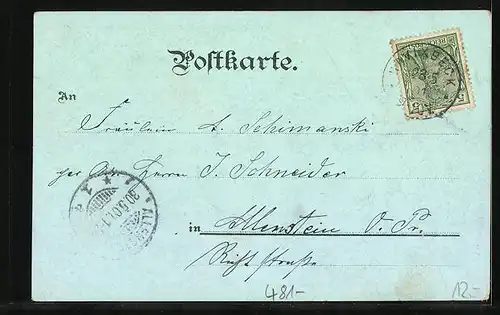 Postkarte.
An
Fräulein A. Schimanski
per Adr. Herrn J. Schneider
in Allenstein O. Pr.
Richtstraße
481-
12.-